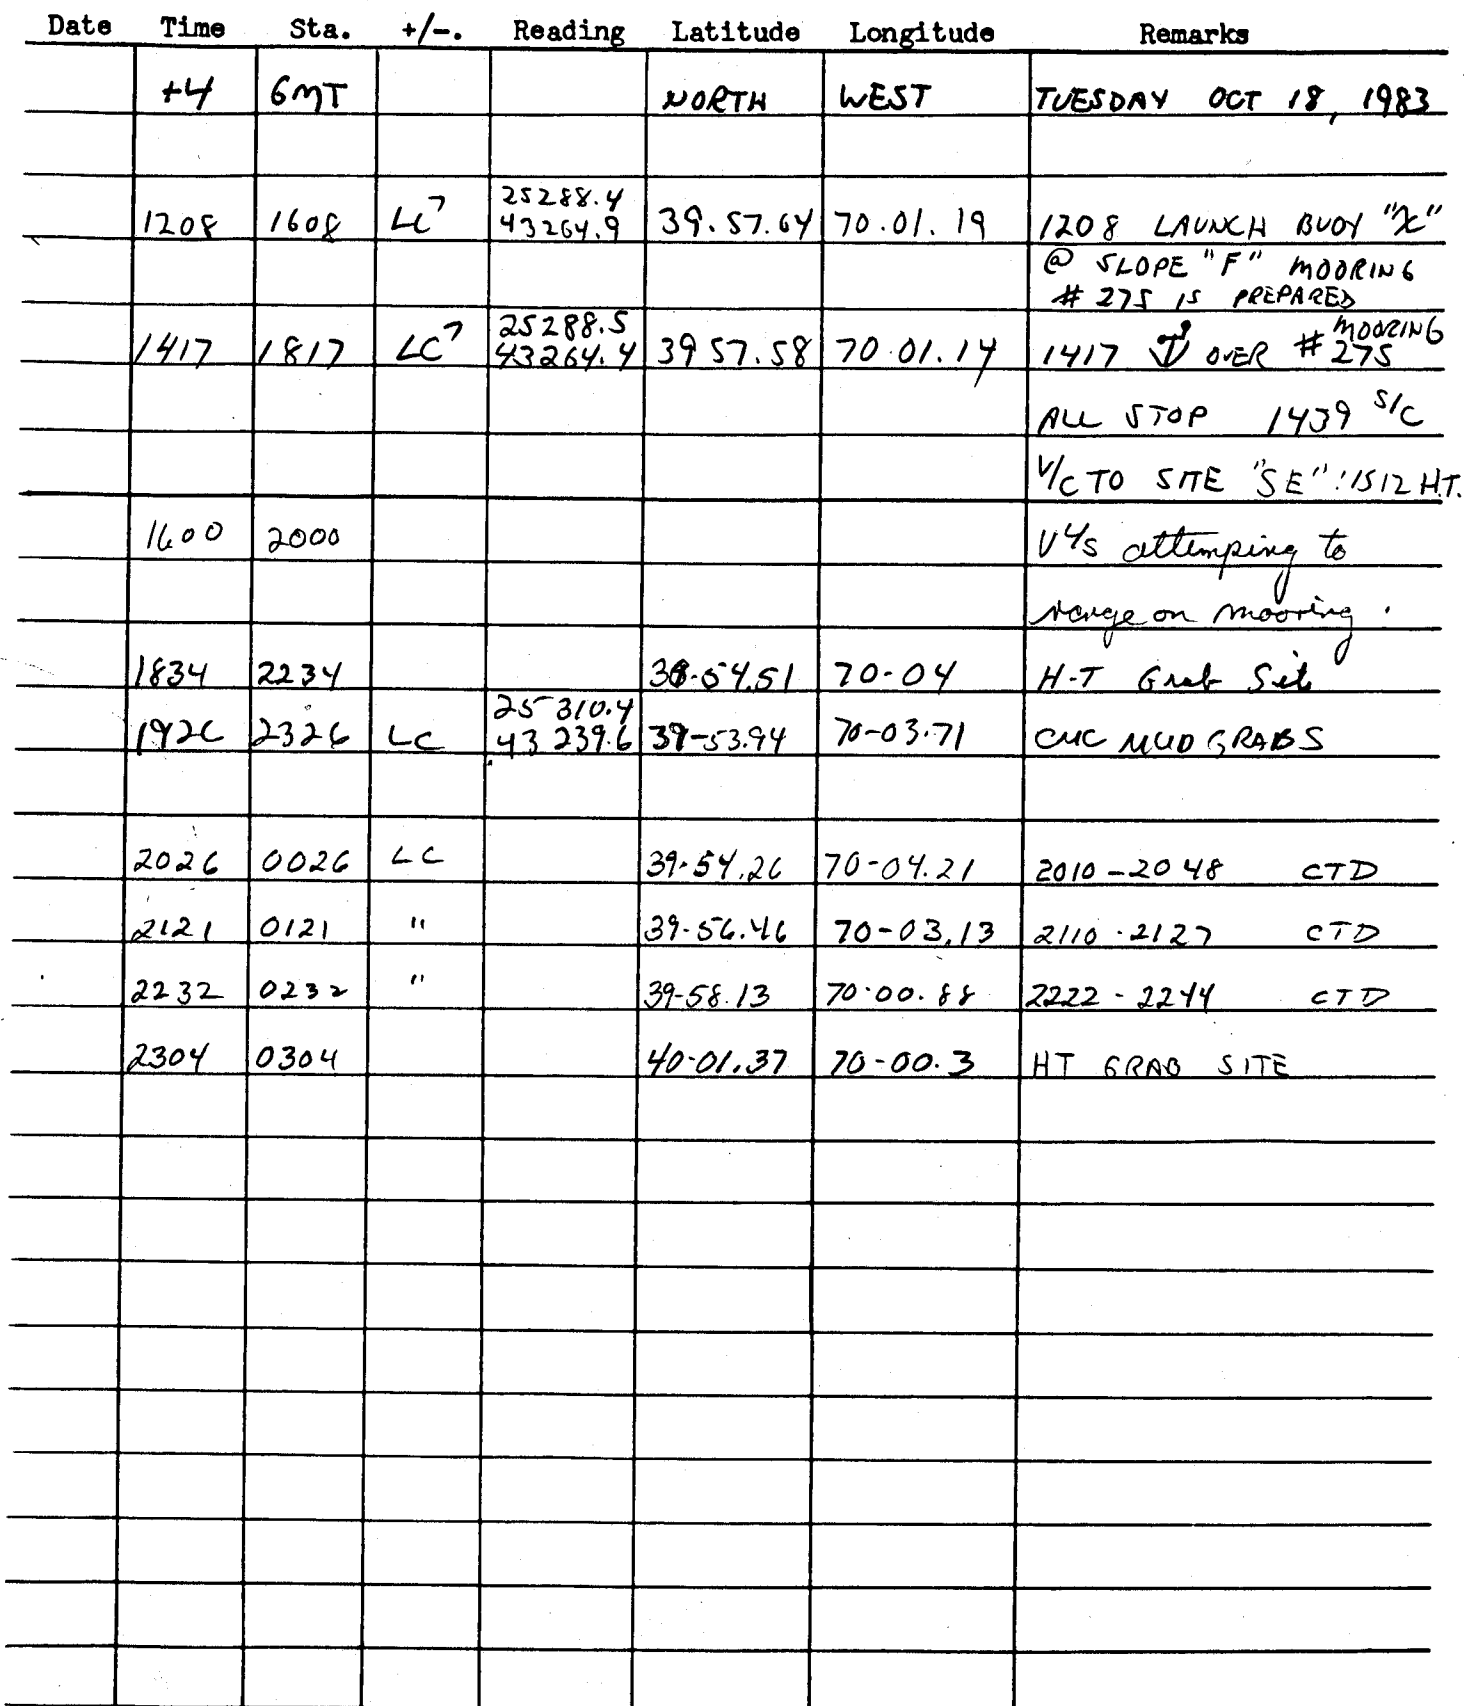 Date Time Sta. +/-. Reading Latitude Longitude Remarks
+4 GMT NORTH WEST TUESDAY OCT 18, 1983
25288.4
1208 1608 LC 43264.9 39.57.64 70.01.19 1208 LAUNCH BUOY "X"
@ SLOPE "F" MOORING
# 275 IS PREPARED
25288.5 MOORING
1417 1817 LC 43264.4 39 57.58 70.01.14 1417 OVER # 275
ALL STOP 1439 S/C
V/C TO SITE "SE" 1512 H.T.
1600 2000 attemping to
range on mooring.
1834 2234 39-54.51 70-04 H-T Grab Site
25 310.4
1926 2326 LC 43 239.6 39-53.94 70-03.71 CMC MUD GRABS
2026 0026 LC 39-54.26 70-04.21 2010-2048 CTD
2121 0121 " 39-56.46 70-03.13 2110-2127 CTD
2232 0232 " 39-58.13 70-00.88 2222-2244 CTD
2304 0304 40-01.37 70-00.3 HT GRAB SITE